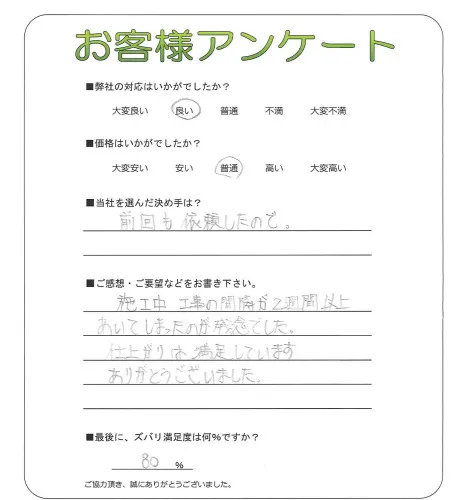 お客様アンケート
■弊社の対応はいかがでしたか？
大変良い 良い 普通 不満 大変不満
■価格はいかがでしたか？
大変安い 安い 普通 高い 大変高い
■当社を選んだ決め手は？
前回も依頼したので。
■ご感想・ご要望などをお書き下さい。
施工中 工事の間隔が2週間以上
あいてしまったのが残念でした。
仕上がりは満足しています
ありがとうございました。
■最後に、ズバリ満足度は何%ですか？
80 %
ご協力頂き、誠にありがとうございました。